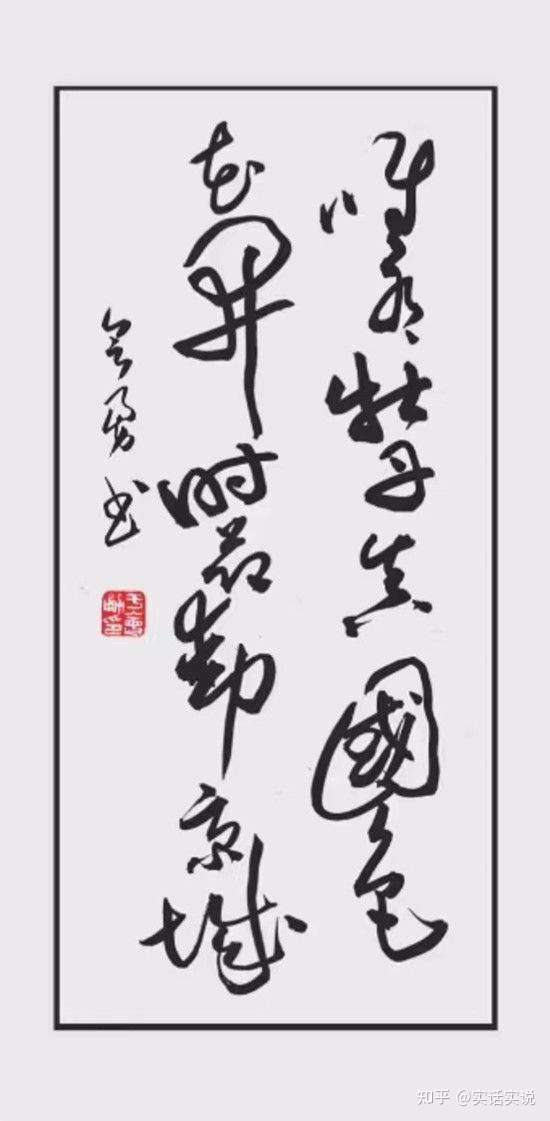 唯有牡丹真國色
花開时节動京城
勇书
知乎 @实话实说